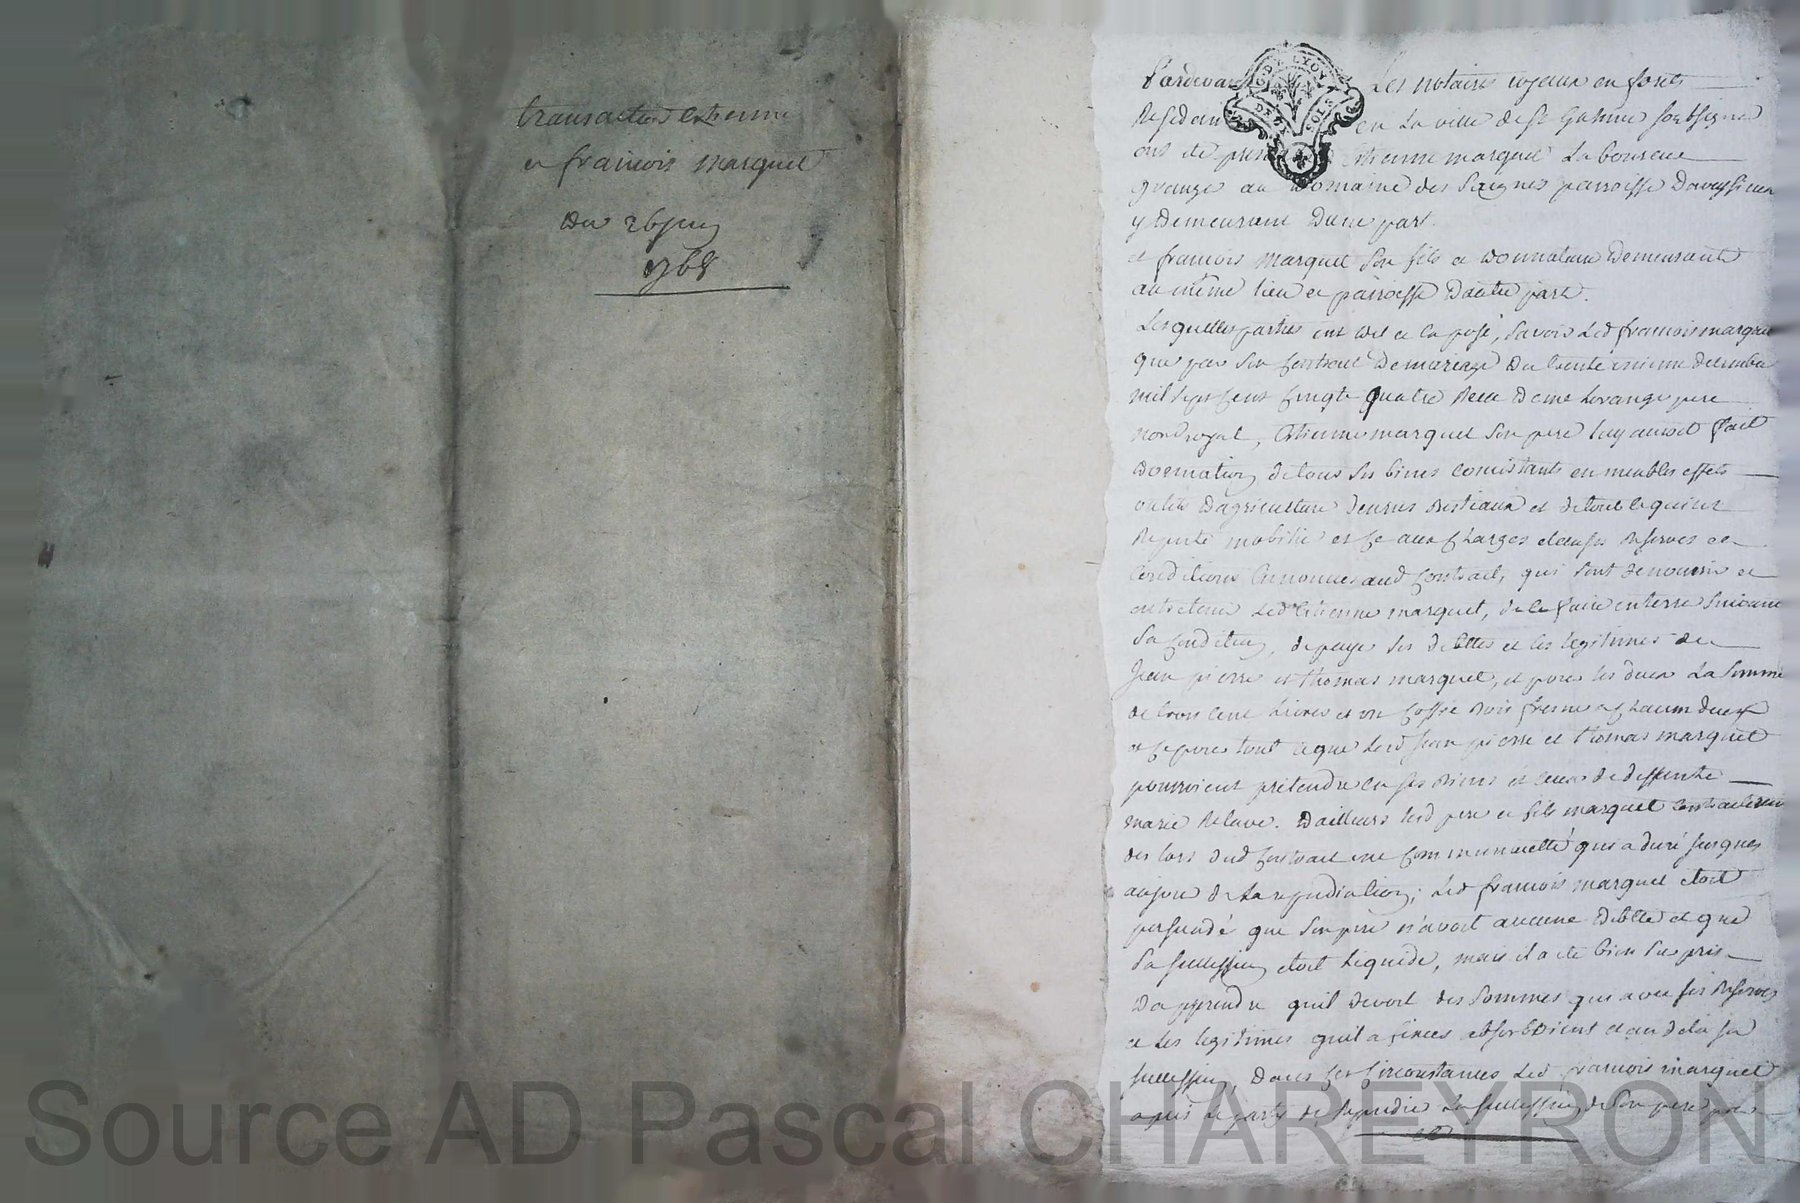 transaction Estienne
et francois marquet
Du 26 juin
1768
Pardevant Les notaires royaux en forets
Residants en La ville de St Galmier soubsignes
ont été presents Estienne marquet Laboureur
granger au Domaine des Saignes parroisse Daveysieu
y Demeurant Dune part.
et francois marquet Son fils et Donnataire Demeurant
au même lieu et parroisse Dautre part.
Lesquelles parties ont dit et exposé, Savoir Led francois marquet
que par Son contract De mariage Du trente unieme decembre
mil Sept cent cinqte quatre Receu De me Levange pere
nore royal, Estienne marquet Son pere luy auroit fait
Donnation de tous Ses biens consistants en meubles effets
outils Dagriculture Denrees Bestiaux et de tout ce qui est
Reputé mobilier et ce aux charges clauses Reserves et
conditions Enoncees aud contract, qui Sont de nourrir et
entretenir Led Estienne marquet, de le faire enterrer Suivant
Sa condition, de payer Ses debttes et les legitimes de
Jean pierre et thomas marquet, et pour les deux La Somme
de trois cent Livres et un coffre Bois fresne a chacun deux
et ce pour tout ce que Lesd Jean pierre et thomas marquet
pourroient prétendre en Ses Biens et ceux de deffunte
marie Relave. Dailleurs lesd pere et fils marquet contracterent
des lors dud contract une communauté qui a duré jusques
aujour de La repudiation; Led francois marquet etoit
persuadé que Son pere n'avoit aucune Debtte et que
Sa Succession etoit Liquide, mais il a été bien Surpris
Dapprendre quil Devoit des Sommes qui avec Ses Reserves
et Les legitimes quil a fixées absorboient et au dela Sa
Succession, Dans ces circonstances Led francois marquet
a pris le party de repudier La Succession de Son pere par